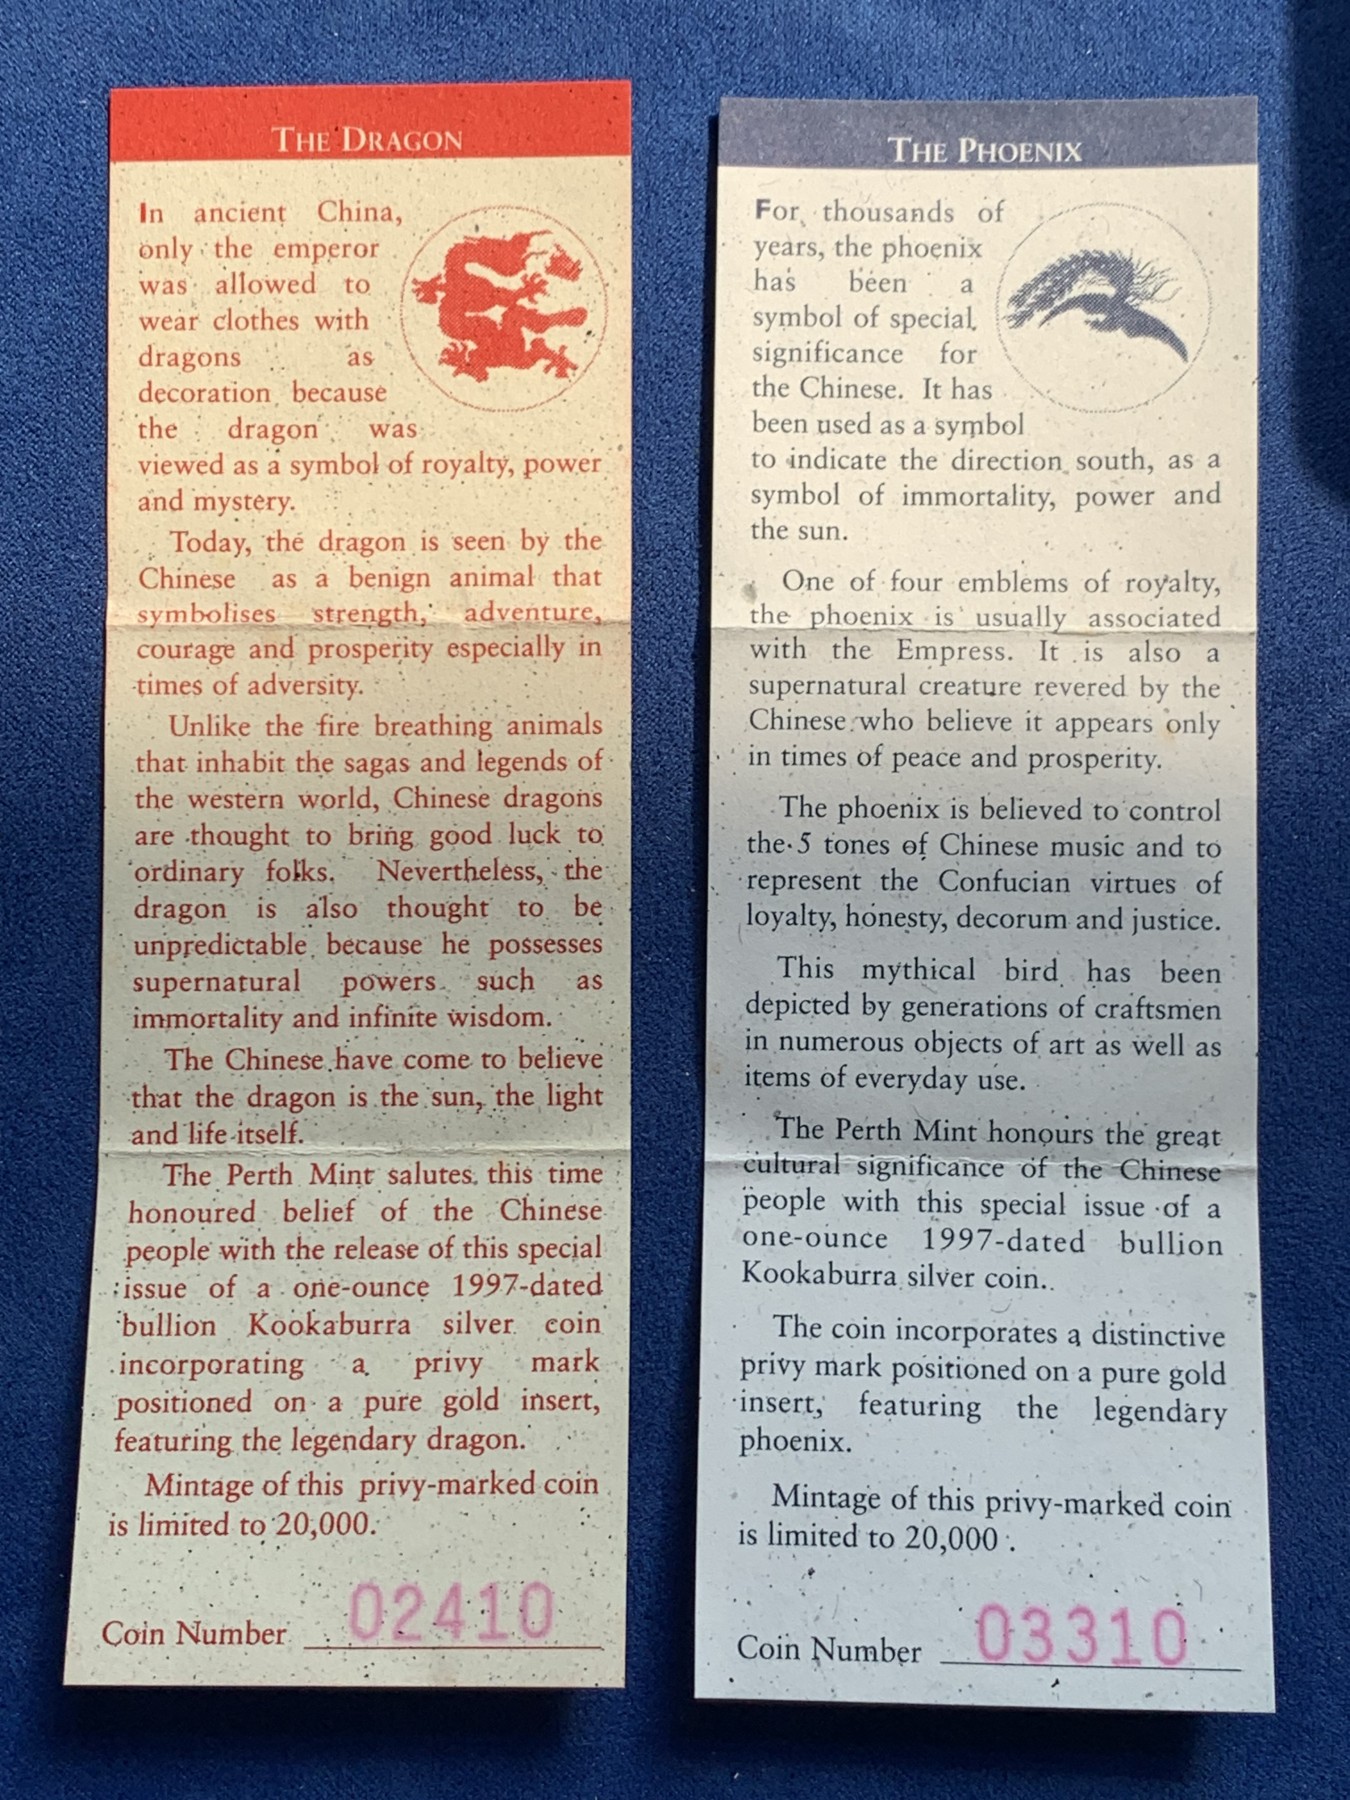 THE DRAGON
In ancient China,
only the emperor
was allowed to
wear clothes with
dragons as
decoration because
the dragon was
viewed as a symbol of royalty, power
and mystery.
Today, the dragon is seen by the
Chinese as a benign animal that
symbolises strength, adventure,
courage and prosperity especially in
times of adversity.
Unlike the fire breathing animals
that inhabit the sagas and legends of
the western world, Chinese dragons
are thought to bring good luck to
ordinary folks. Nevertheless, the
dragon is also thought to be
unpredictable because he possesses
supernatural powers such as
immortality and infinite wisdom.
The Chinese have come to believe
that the dragon is the sun, the light
and life itself.
The Perth Mint salutes this time
honoured belief of the Chinese
people with the release of this special
issue of a one-ounce 1997-dated
bullion Kookaburra silver coin
incorporating a privy mark
positioned on a pure gold insert,
featuring the legendary dragon.
Mintage of this privy-marked coin
is limited to 20,000.
Coin Number 02410
THE PHOENIX
For thousands of
years, the phoenix
has been a
symbol of special
significance for
the Chinese. It has
been used as a symbol
to indicate the direction south, as a
symbol of immortality, power and
the sun.
One of four emblems of royalty,
the phoenix is usually associated
with the Empress. It is also a
supernatural creature revered by the
Chinese who believe it appears only
in times of peace and prosperity.
The phoenix is believed to control
the 5 tones of Chinese music and to
represent the Confucian virtues of
loyalty, honesty, decorum and justice.
This mythical bird has been
depicted by generations of craftsmen
in numerous objects of art as well as
items of everyday use.
The Perth Mint honours the great
cultural significance of the Chinese
people with this special issue of a
one-ounce 1997-dated bullion
Kookaburra silver coin.
The coin incorporates a distinctive
privy mark positioned on a pure gold
insert, featuring the legendary
phoenix.
Mintage of this privy-marked coin
is limited to 20,000.
Coin Number 03310